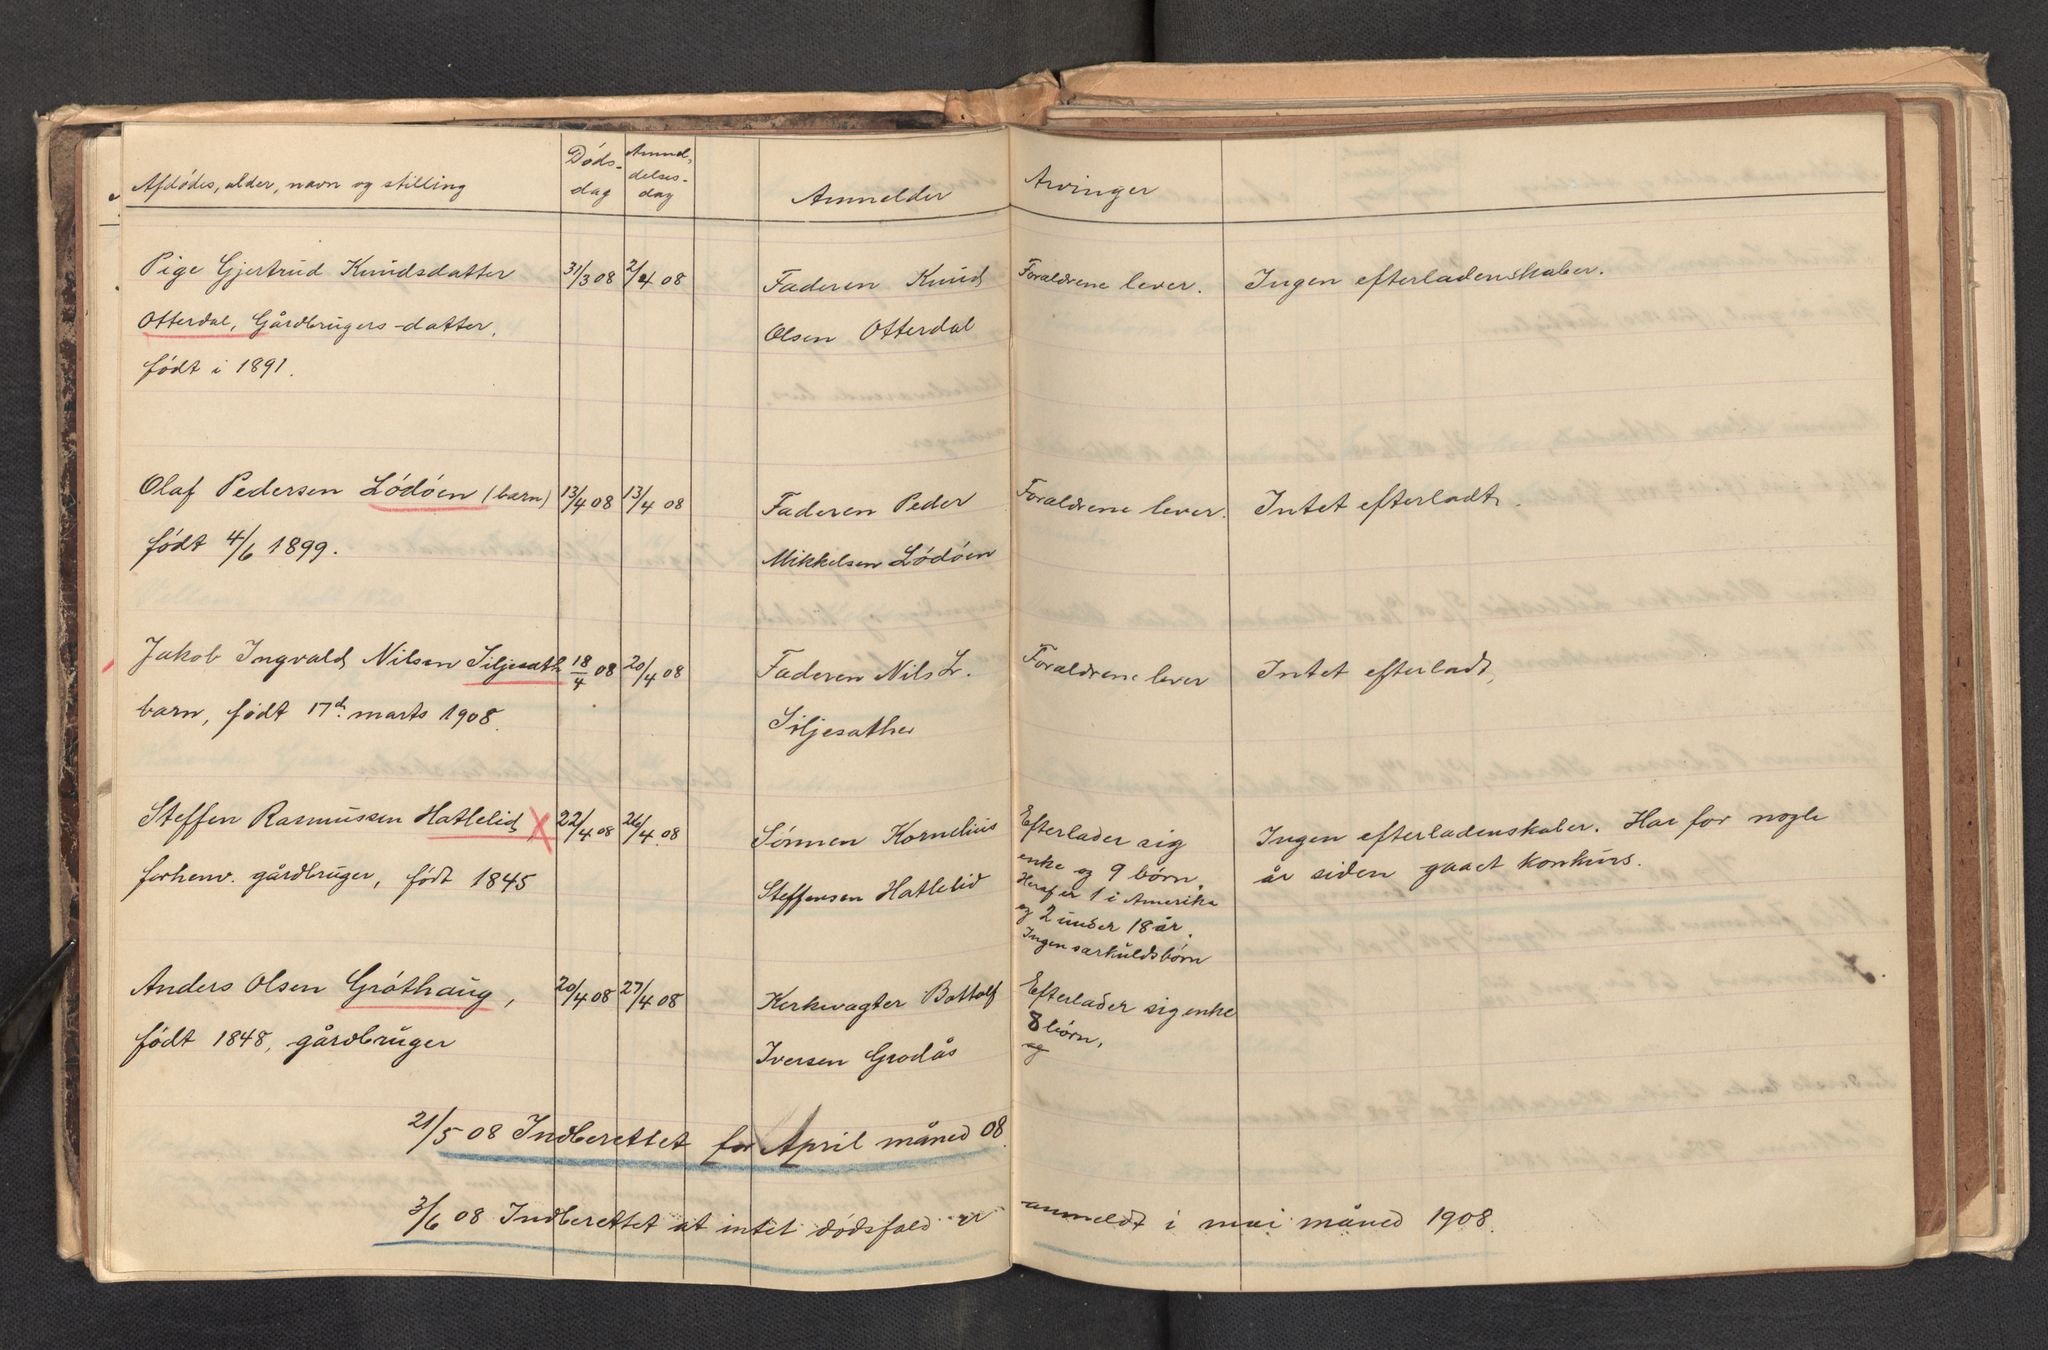 Afdødes, alder, navn og stilling
Døds-
dag
Anmel-
delses-
dag
Anmelder
Arvinger
Pige Gjertrud Knudsdatter 31/3 08 2/4 08 Faderen Knud Foraldrene lever. Ingen efterladenskaber.
Otterdal, Gårdbrugers-datter, Olsen Otterdal
født i 1891.
Olaf Pedersen Lødøen (barn) 13/4 08 13/4 08 Faderen Peder Foraldrene lever. Intet efterladt.
født 4/6 1899. Mikkelsen Lødøen
Jakob Ingvald Nilsen Siljesath 18/4 08 20/4 08 Faderen Nils L. Foraldrene lever Intet efterladt,
barn, født 17d. marts 1908. Siljesather
Steffen Rasmussen Hatlelid 22/4 08 26/4 08 Sønnen Kornelius
forhenv. gårdbruger, født 1845 Steffensen Hatlelid
Efterlader sig
enke og 9 børn.
Heraf er 1 i Amerika
og 2 under 18 år.
Ingen sarkuldsbørn
Ingen efterladenskaber. Har for nogle
år siden gaaet konkurs.
Anders Olsen Grøthaug, 20/4 08 27/4 08 Kerkevagter Bottolf Efterlader sig enke
født 1848, gårdbruger Iversen Grodås
8 børn,
og
21/5 08 Indberettet for April måned 08
3/6 08 Indberettet at intet dødsfald er anmeldt i mai måned 1908.